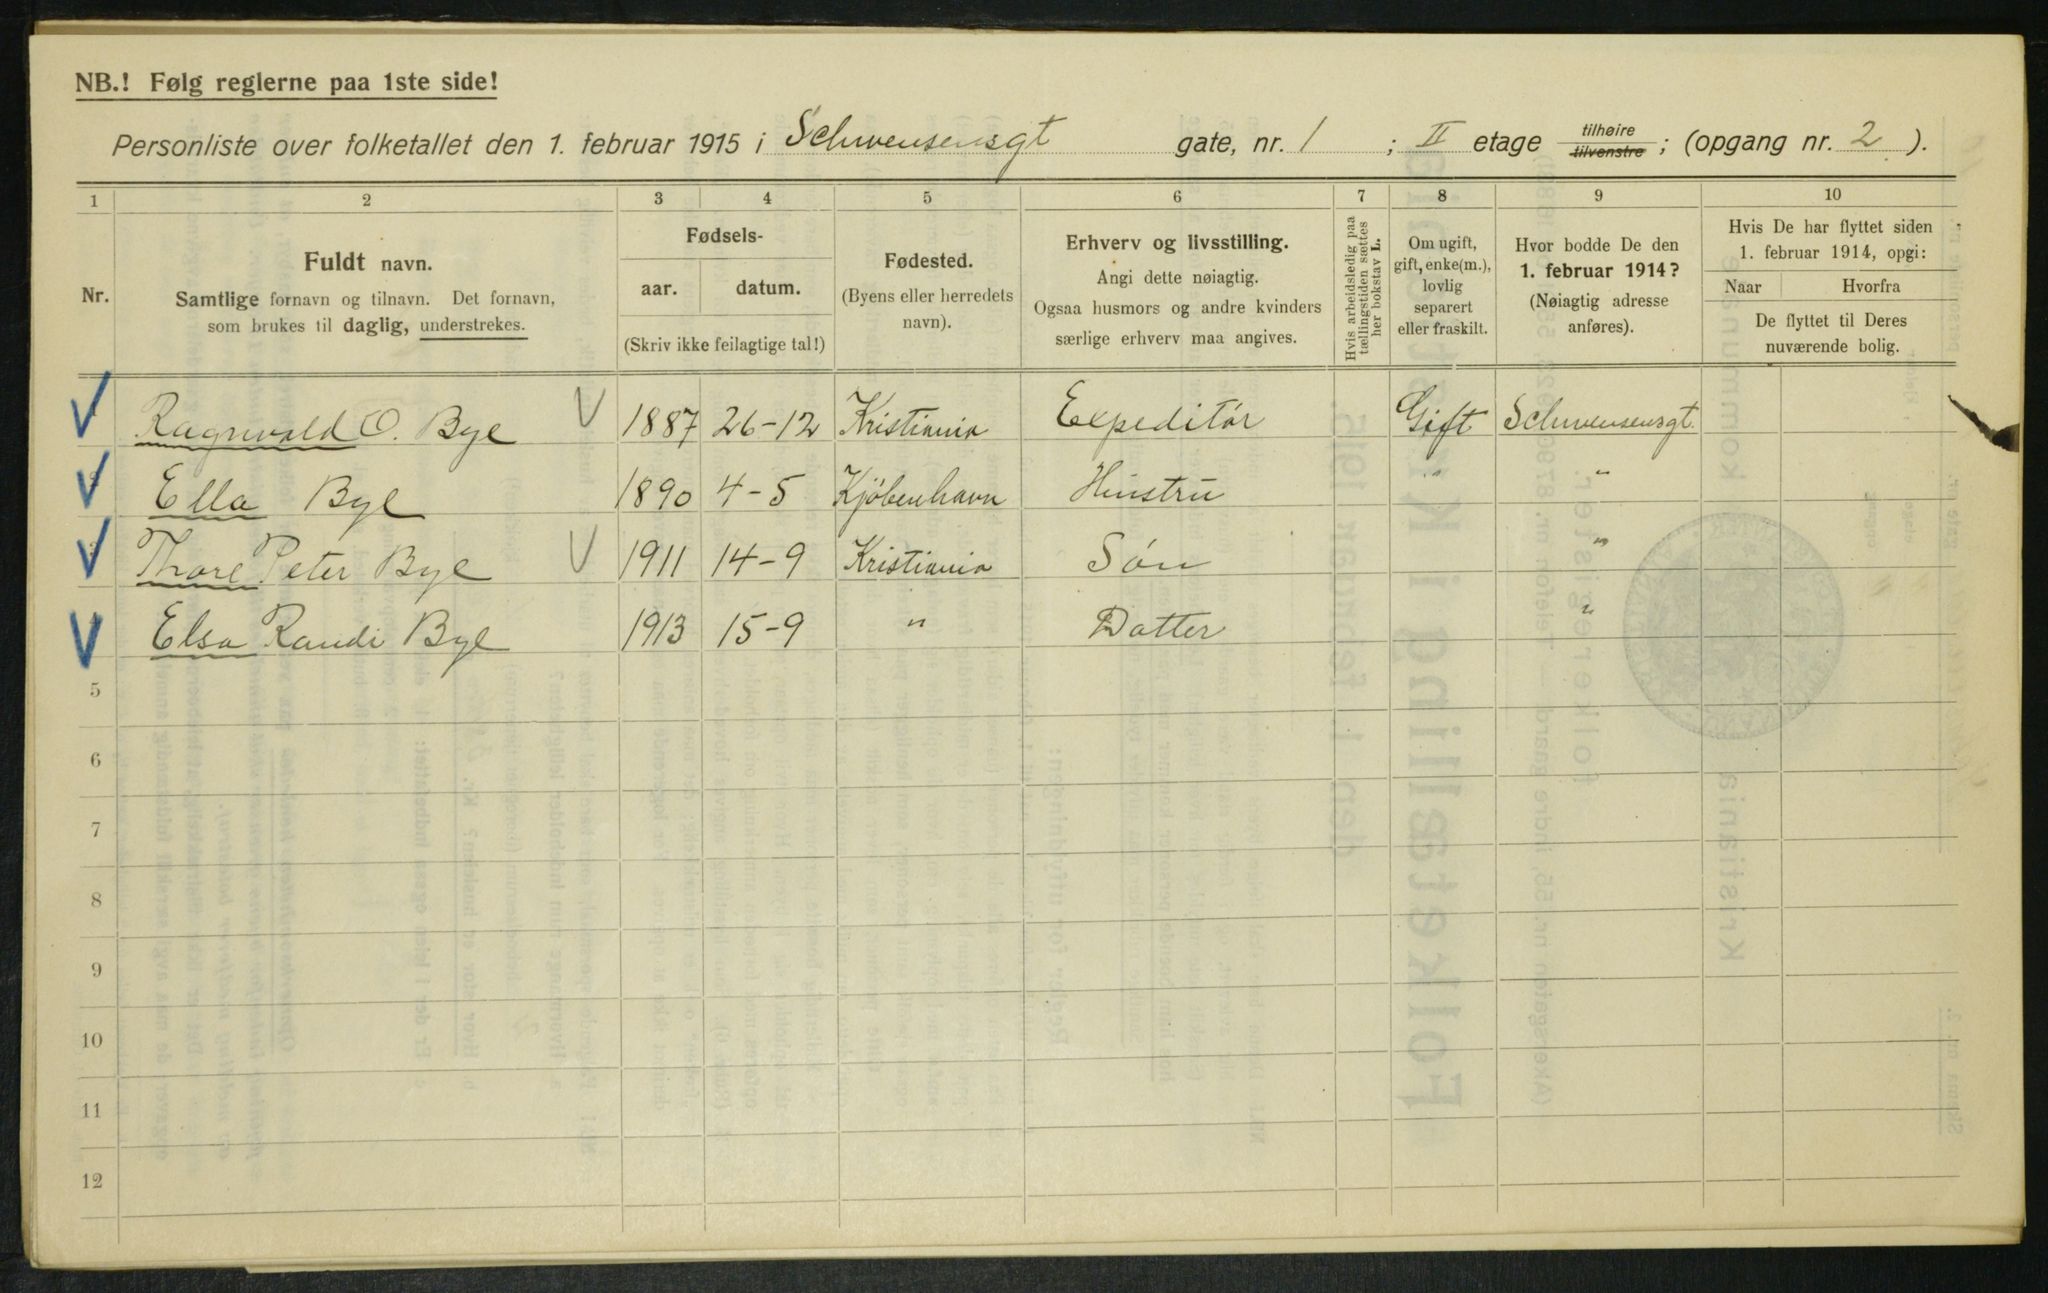 NB.! Følg reglerne paa 1ste side!
Personliste over folketallet den 1. februar 1915 i Schwensensgt gate, nr. 1 ; II etage tilhøire tilvenstre ; (opgang nr. 2 ).
1 2 3 4 5 6 7 8 9 10
Nr.
Fuldt navn.
Samtlige fornavn og tilnavn. Det fornavn,
som brukes til daglig, understrekes.
Fødsels-
aar. datum.
(Skriv ikke feilagtige tal!)
Fødested.
(Byens eller herredets
navn).
Erhverv og livsstilling.
Angi dette nøiagtig.
Ogsaa husmors og andre kvinders
særlige erhverv maa angives.
Hvis arbeidsledig paa
tællingstiden sættes
her bokstav L.
Om ugift,
gift, enke(m.),
lovlig
separert
eller fraskilt.
Hvor bodde De den
1. februar 1914?
(Nøiagtig adresse
anføres).
Hvis De har flyttet siden
1. februar 1914, opgi:
Naar Hvorfra
De flyttet til Deres
nuværende bolig.
1 Ragnvald O. Bye 1887 26-12 Kristiania Expeditör Gift Schwensensgt.
2 Ella Bye 1890 4-5 Kjöbenhavn Hustru " "
3 Thore Peter Bye 1911 14-9 Kristiania Sön "
4 Elsa Randi Bye 1913 15-9 " Datter "
5
6
7
8
9
10
11
12